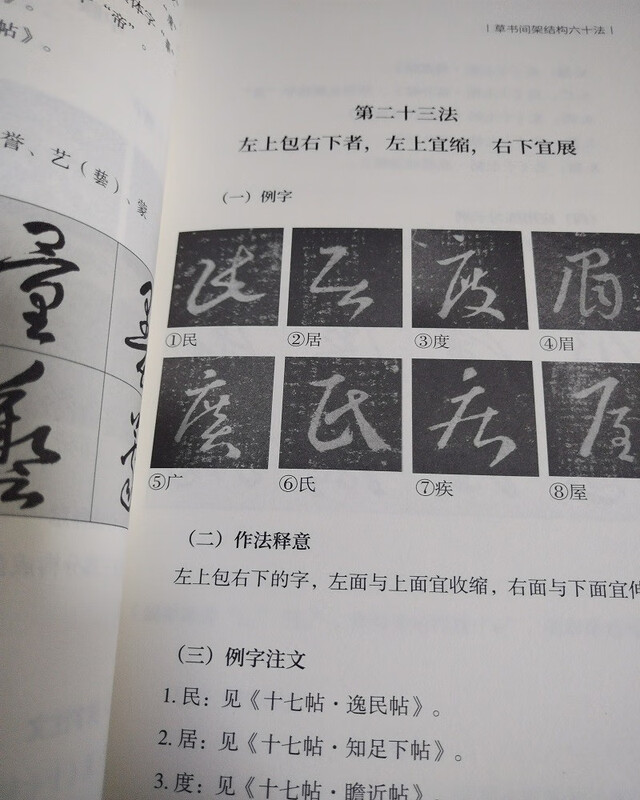 体字
"帝"。
帖》。
誉、艺（藝）、蒙
草书间架结构六十法
第二十三法
左上包右下者，左上宜缩，右下宜展
（一）例字
①民 ②居 ③度 ④眉
⑤广 ⑥氏 ⑦疾 ⑧屋
（二）作法释意
左上包右下的字，左面与上面宜收缩，右面与下面宜伸
（三）例字注文
1. 民：见《十七帖·逸民帖》。
2. 居：见《十七帖·知足下帖》。
3. 度：见《十七帖·瞻近帖》。